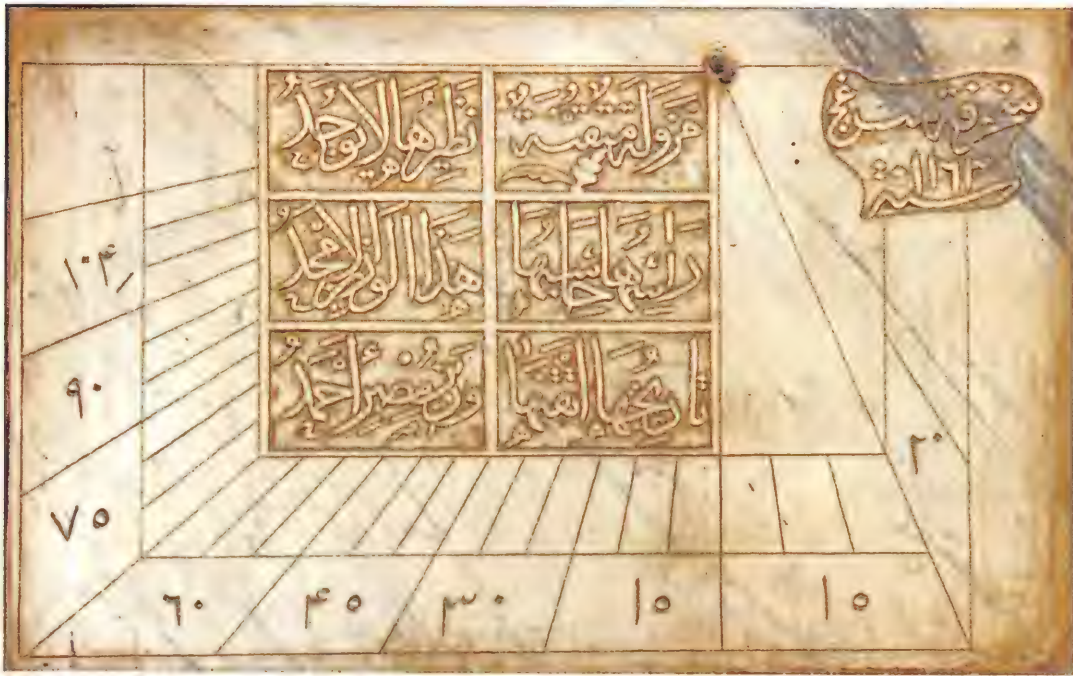 مزولة متقنة نظيرها لا يوجد
راسمها حاسبها هذا الوزير الأمجد
تاريخها أتقنها وزير مصر أحمد
سنة ١١٦٣
٢٠
١٠٤
٩٠
٧٥
١٥ ١٥ ٣٠ ٤٥ ٦٠